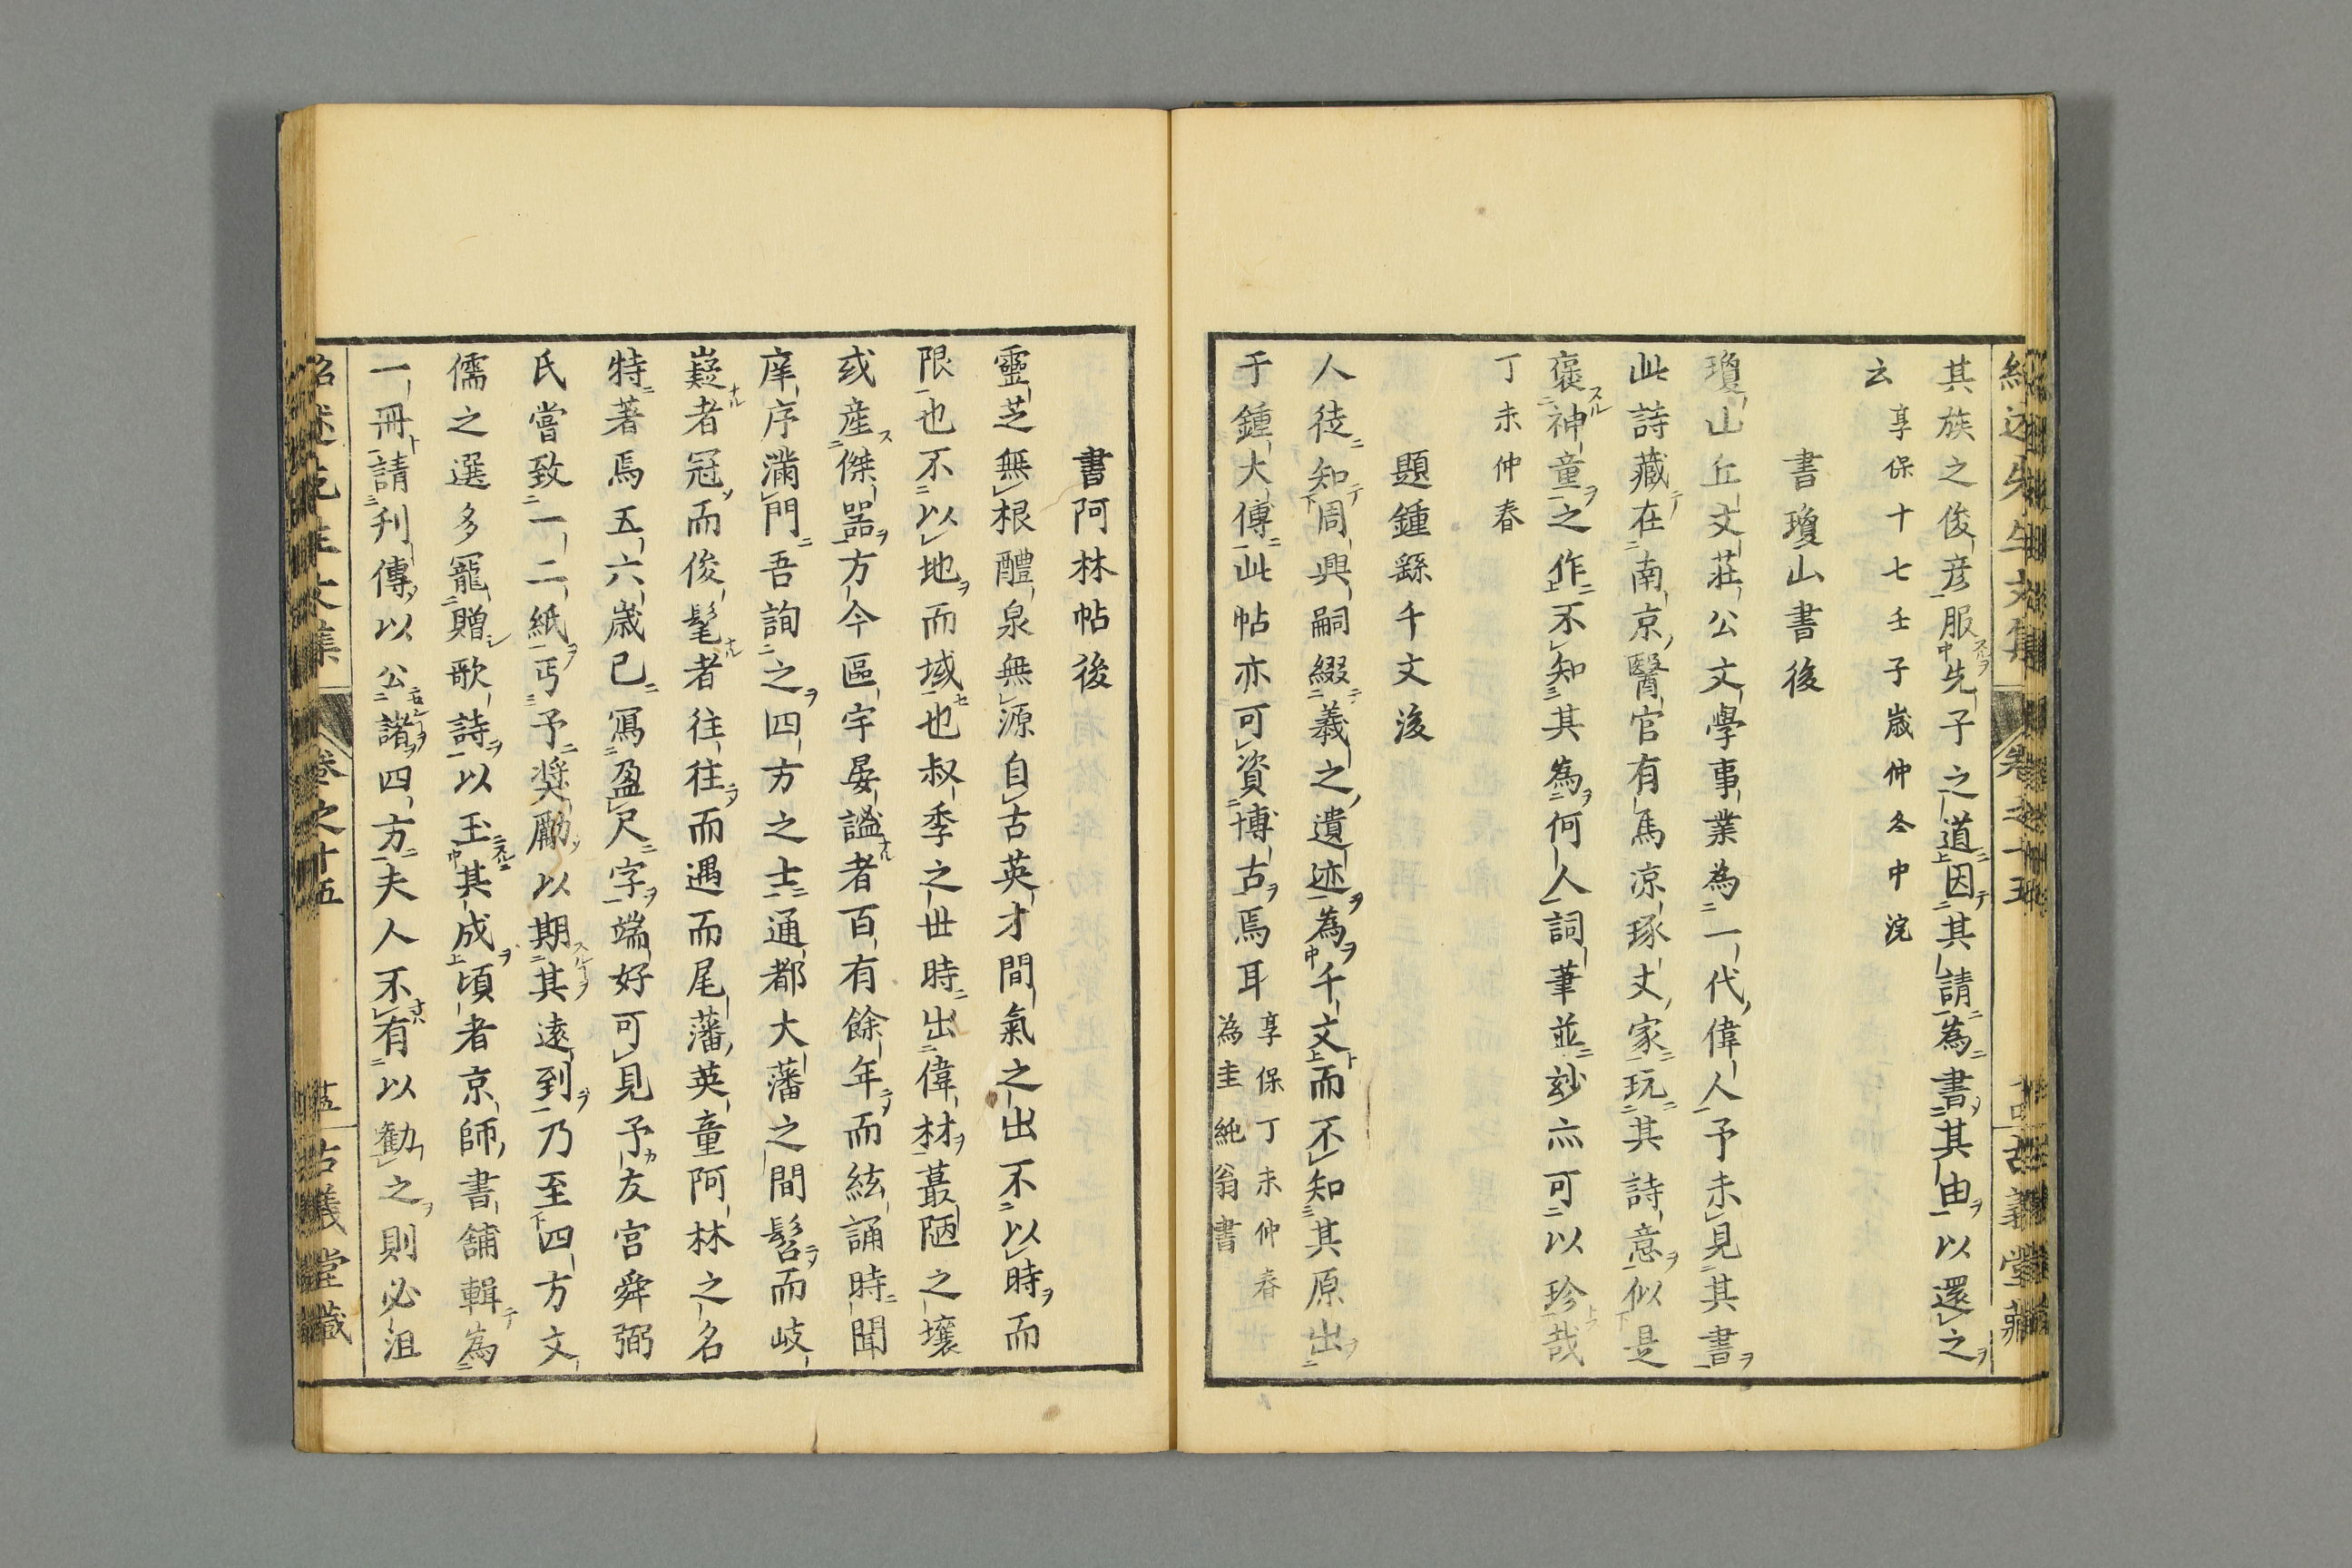 其族之俊彦服先子之道因其請為書其由以還之
云 享保十七壬子歳仲冬中浣
書瓊山書後
瓊山丘文莊公文學事業為一代偉人予未見其書
此詩藏在南京醫官有馬凉琢丈家玩其詩意似是
褒神童之作不知其為何人詞筆並玅亦可以珍哉
丁未仲春
題鍾繇千文後
人徒知周興嗣綴義之遺迹為千文而不知其原出
于鍾大傳此帖亦可資博古焉耳 享保丁未仲春
為圭純翁書
書阿林帖後
靈芝無根醴泉無源自古英才間氣之出不以時而
限也不以地而域也叔季之世時出偉材蕞陋之壤
或産傑噐方今區宇晏謐者百有餘年而絃誦時聞
庠序滿門吾詢之四方之士通都大藩之間髫而岐
嶷者冠而俊髦者往往而遇而尾藩英童阿林之名
特著焉五六歳已寫盈尺字端好可見予友宮舜弼
氏嘗致一二紙丐予奨勵以期其遠到乃至四方文
儒之選多寵贈歌詩以玉其成頃者京師書鋪輯為
一冊請刋傳以公諸四方夫人不有以勸之則必沮
紹述先生文集
卷之十五
古義堂藏